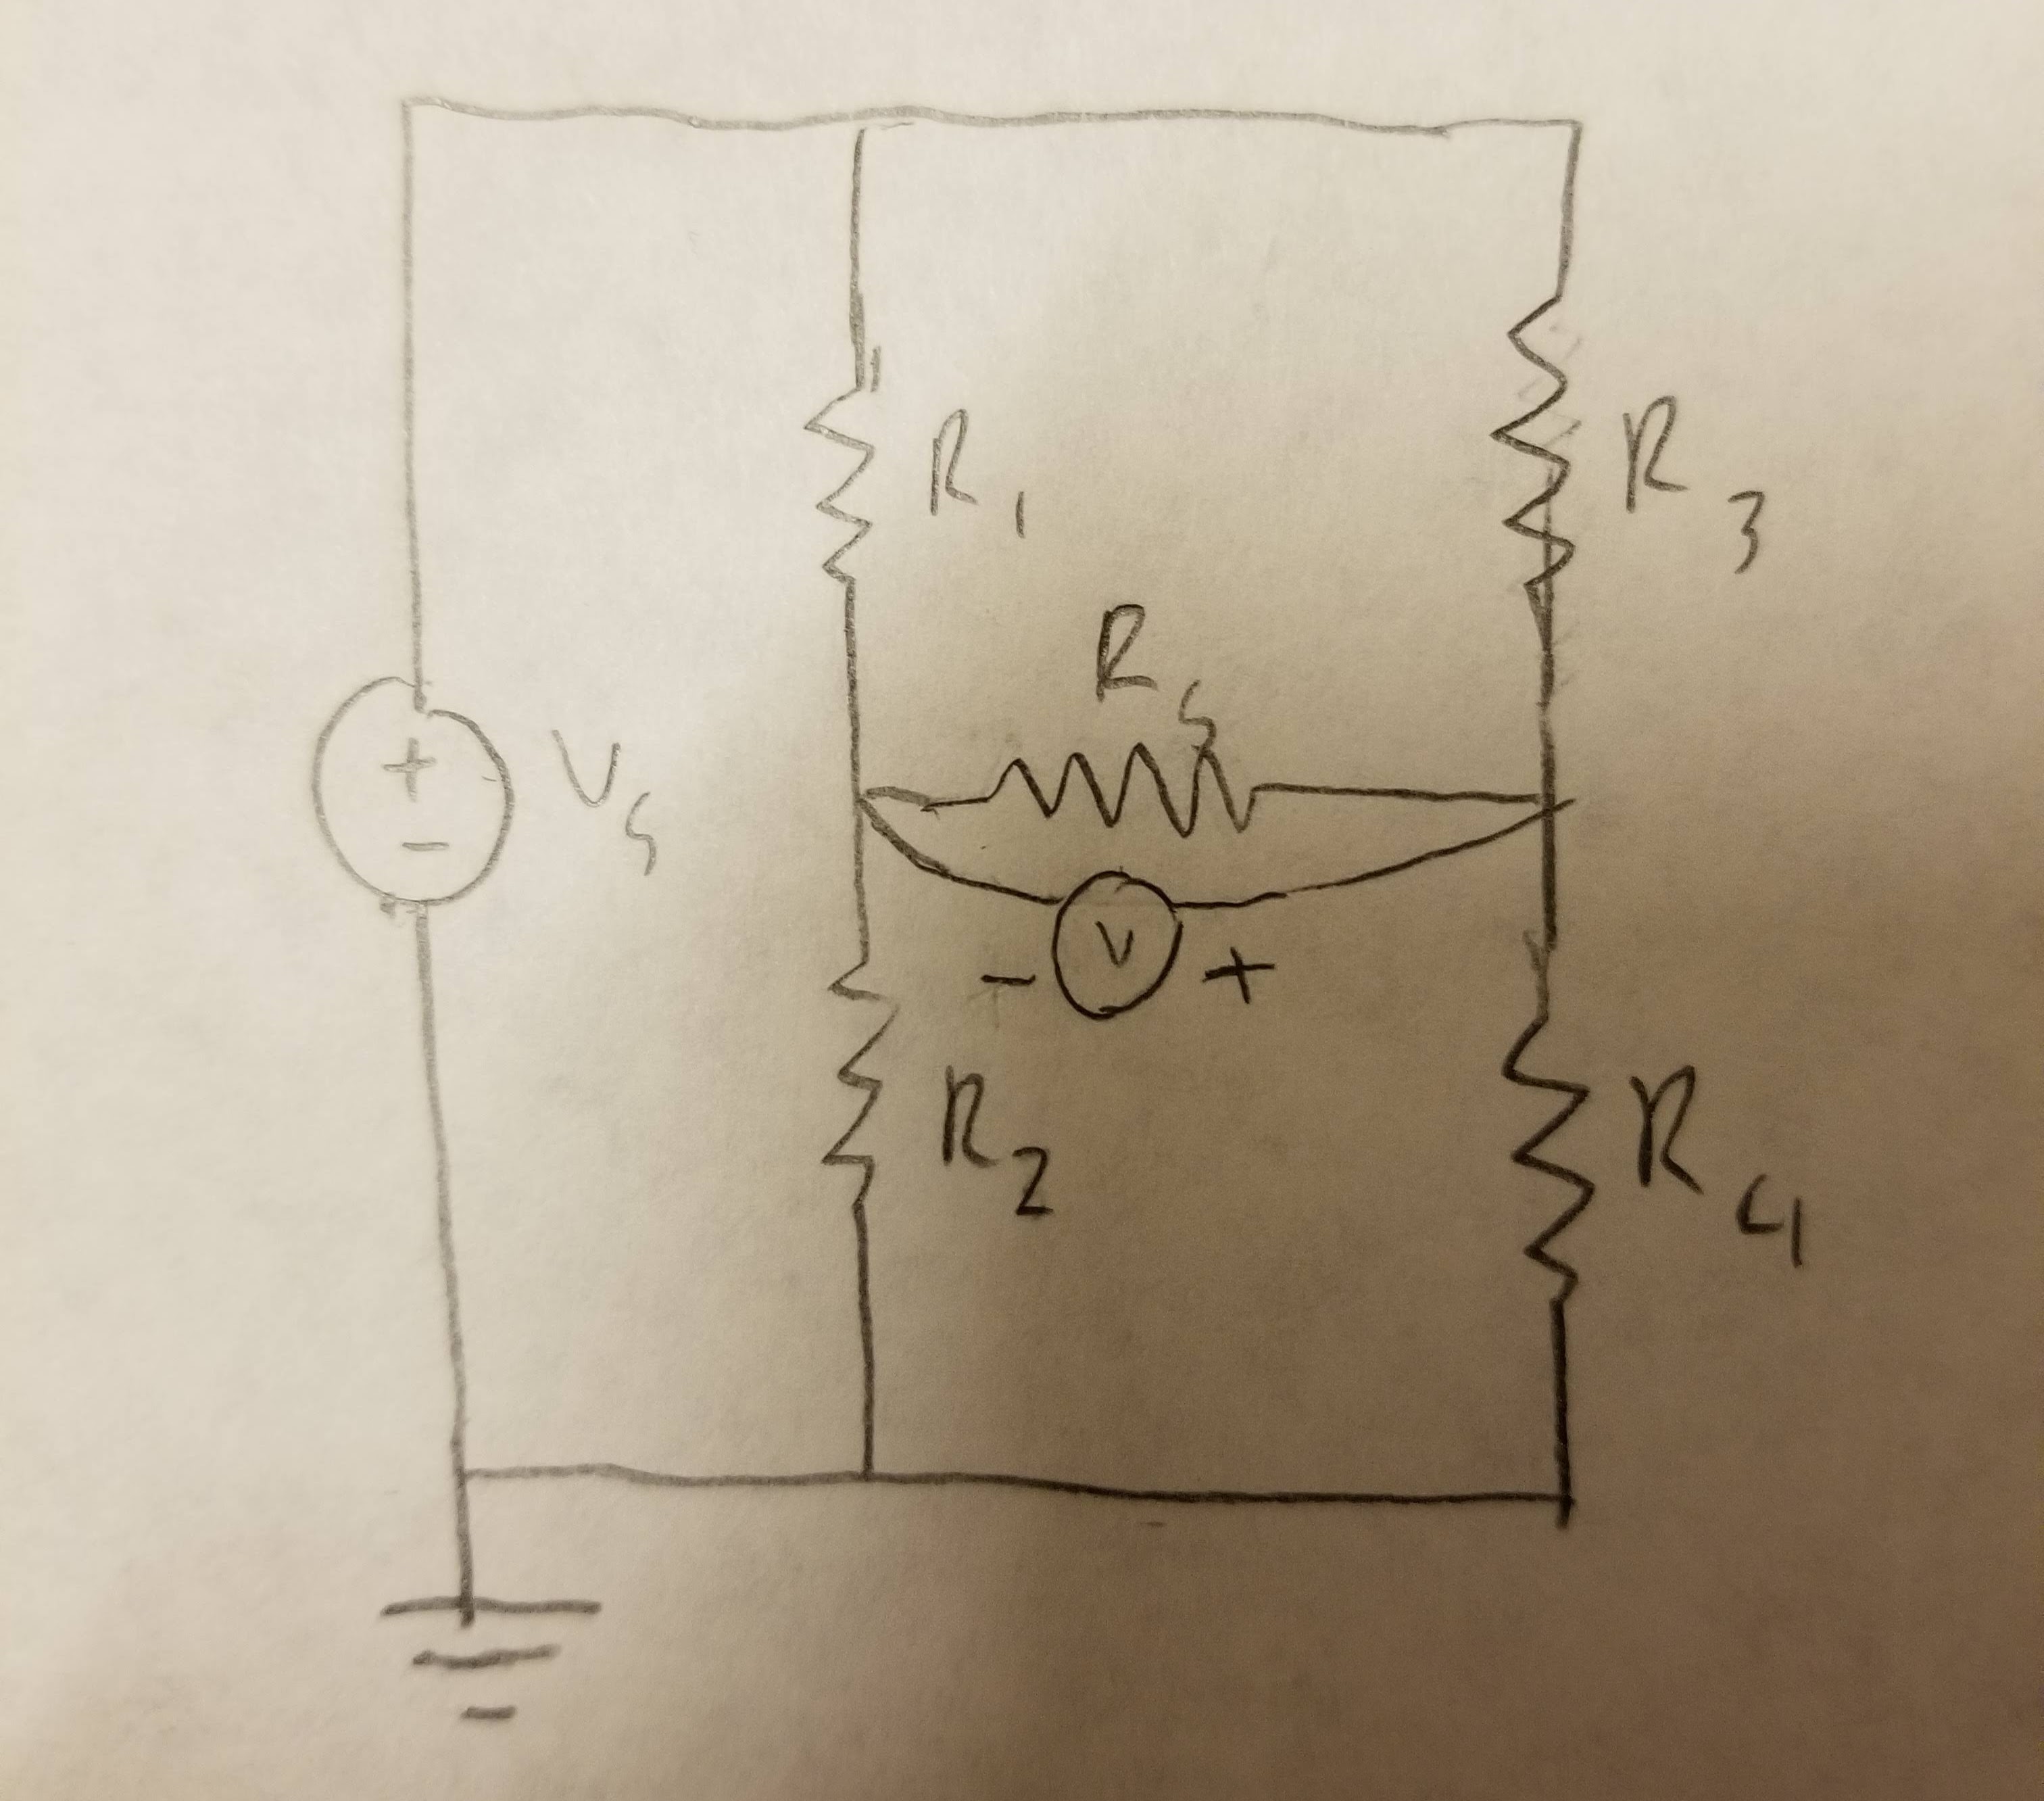 R1
R3
R5
+
-
Vs
V
- +
R2
R4